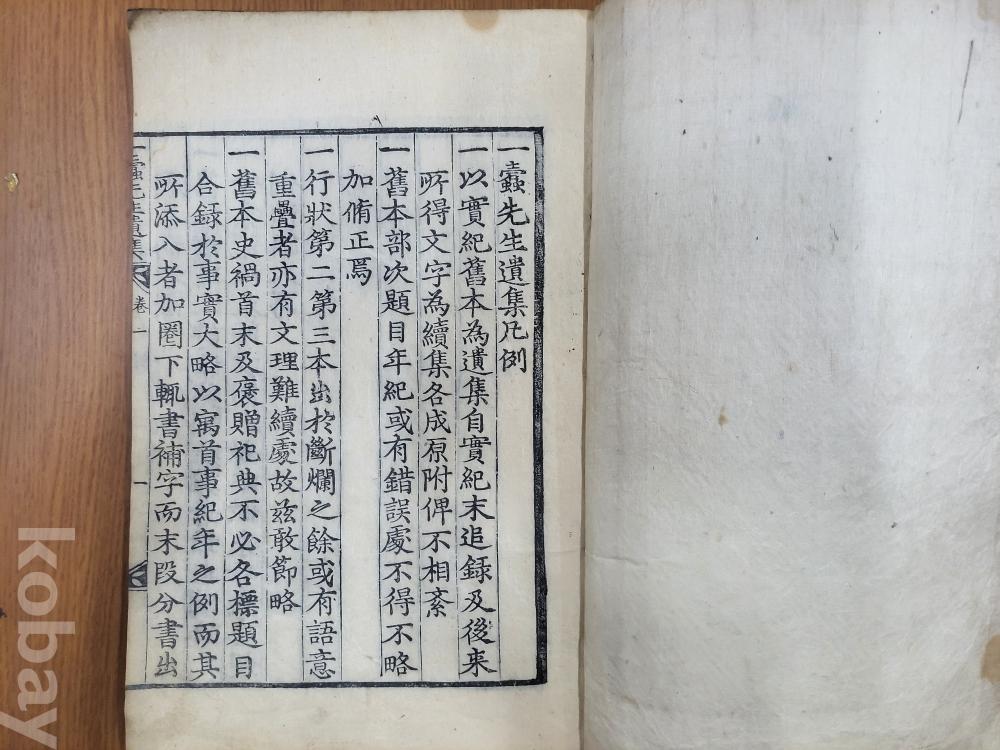 一蠹先生遺集凡例
一以實紀舊本為遺集自實紀末追錄及後来
所得文字為續集各成原附俾不相紊
一舊本部次題目年紀或有錯誤處不得不略
加脩正焉
一行狀第二第三本出於斷爛之餘或有語意
重疊者亦有文理難續處故玆敢節略
一舊本史禍首末及褒贈祀典不必各標題目
合錄於事實大略以寓首事紀年之例而其
所添入者加圈下輒書補字而末段分書出
一蠹先生遺集
卷一
一
kobay